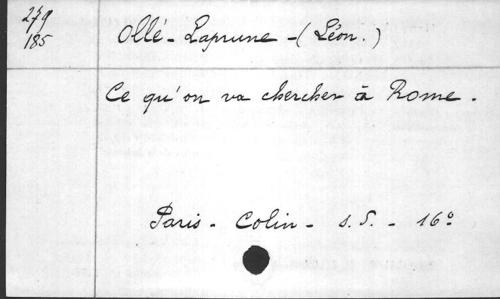 279
185
Ollé-Laprune-(Léon.)
Ce qu'on va chercher à Rome.
Paris- Colin- s.d.- 16º